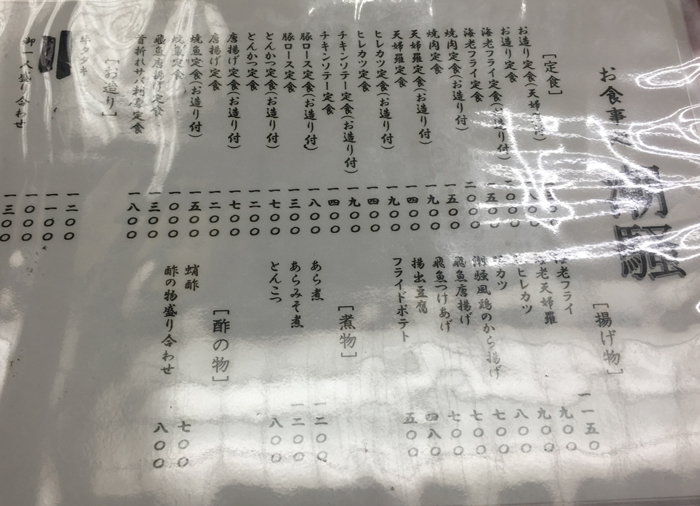 お食事処 潮騒
[定食]
お造り定食(天婦羅
お造り定食
海老フライ定食(お造り付)
海老フライ定食 一五〇〇
焼肉定食(お造り付) 二〇〇〇
焼肉定食 一五〇〇
天婦羅定食(お造り付) 一九〇〇
天婦羅定食 一四〇〇
ヒレカツ定食(お造り付) 一九〇〇
ヒレカツ定食 一四〇〇
チキンソテー定食(お造り付) 一九〇〇
チキンソテー定食 一四〇〇
豚ロース定食(お造り付) 一八〇〇
豚ロース定食 一三〇〇
とんかつ定食(お造り付) 一七〇〇
とんかつ定食 一二〇〇
唐揚げ定食(お造り付) 一七〇〇
唐揚げ定食 一二〇〇
焼魚定食(お造り付) 一五〇〇
焼魚定食 一〇〇〇
飛魚唐揚げ定食 一三〇〇
首折れサバ刺身定食 一八〇〇
[お造り]
タタキ 一二〇〇
一一〇〇
一〇〇〇
御一人盛り合わせ 一三〇〇
[揚げ物]
海老フライ 一一五〇
海老天婦羅 九〇〇
ヒレカツ 九〇〇
カツ 八〇〇
潮騒風鶏のから揚げ 七〇〇
飛魚唐揚げ 七〇〇
飛魚つけあげ 七〇〇
揚出豆腐 四八〇
フライドポテト 五〇〇
[煮物]
あら煮 一二〇〇
あらみそ煮 一二〇〇
とんこつ 八〇〇
[酢の物]
蛸酢 七〇〇
酢の物盛り合わせ 八〇〇